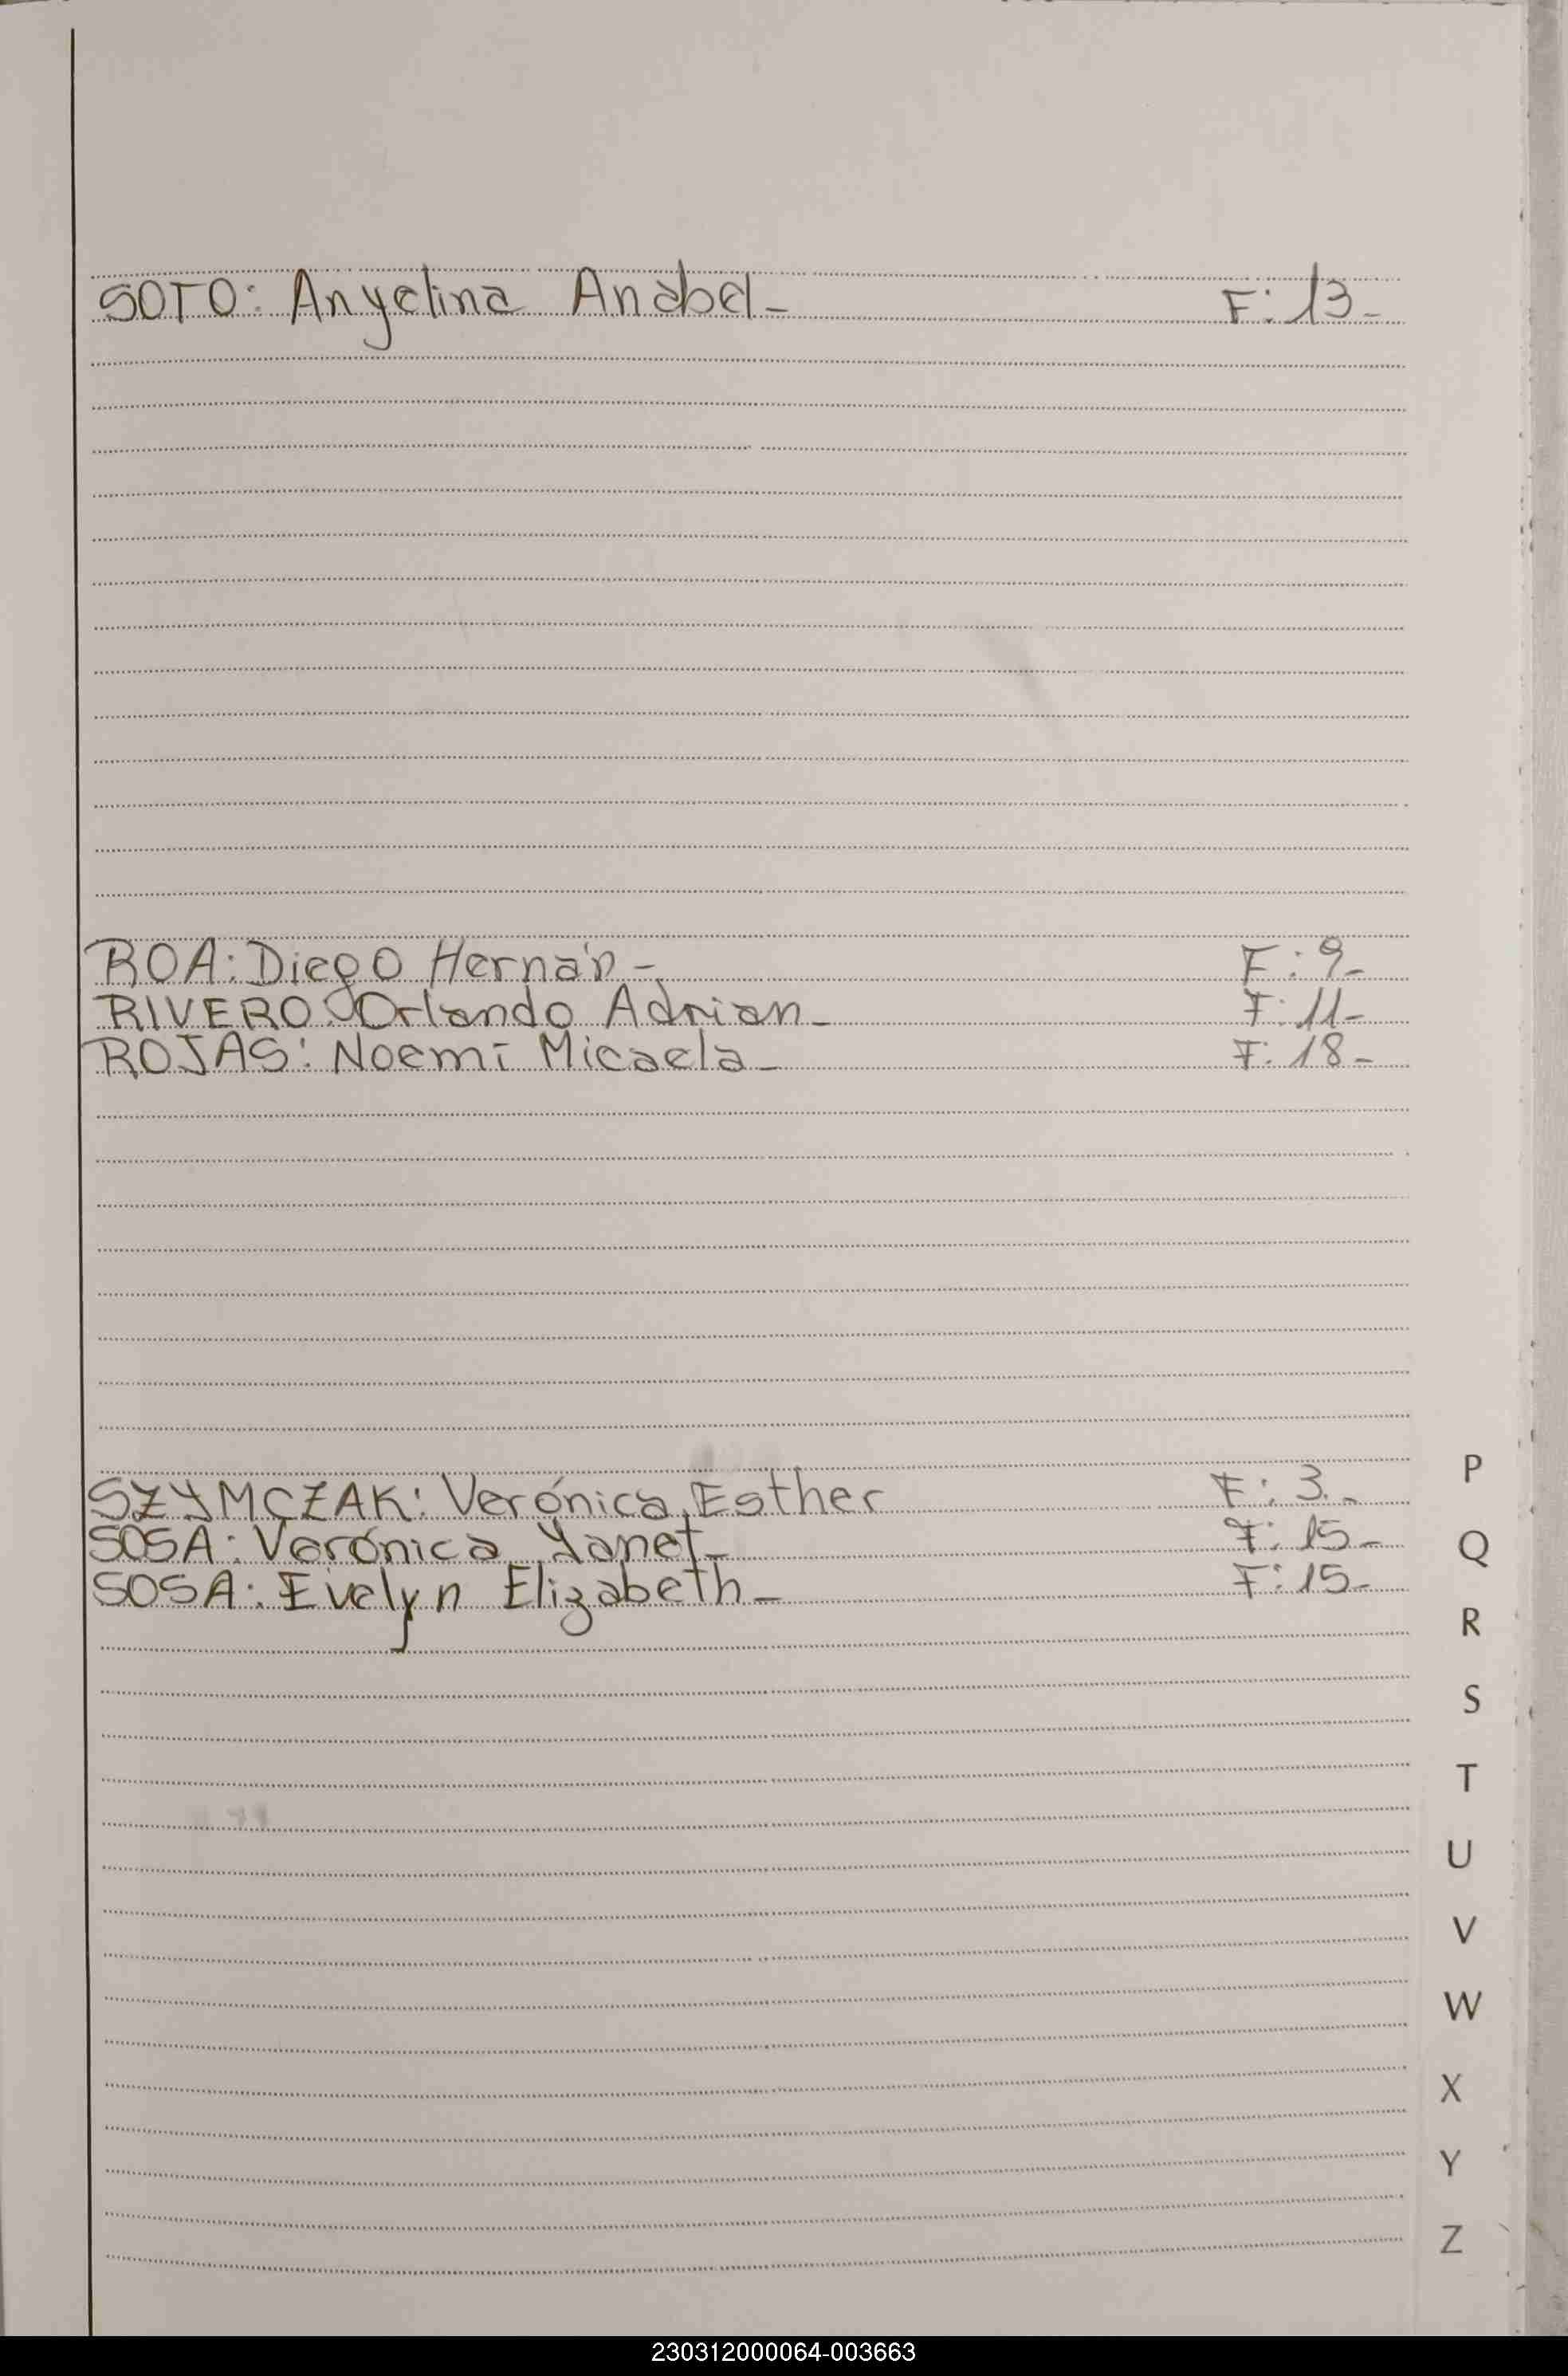 SOTO: Anyelina Anabel- F: 13-
ROA: Diego Hernán- F: 9-
RIVERO: Orlando Adrian- F: 11-
ROJAS: Noemi Micaela- F: 18-
SZYMCZAK: Verónica Esther F: 3.-
SOSA: Verónica Yanet- F: 15-
SOSA: Evelyn Elizabeth- F: 15-
P
Q
R
S
T
U
V
W
X
Y
Z
230312000064-003663